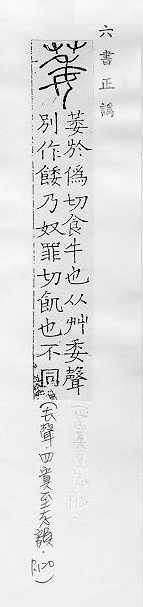 六書正譌
萎於偽切食牛也从艸委聲
別作餧乃奴罪切飢也不同
(去聲四寘至志韻.P.120)